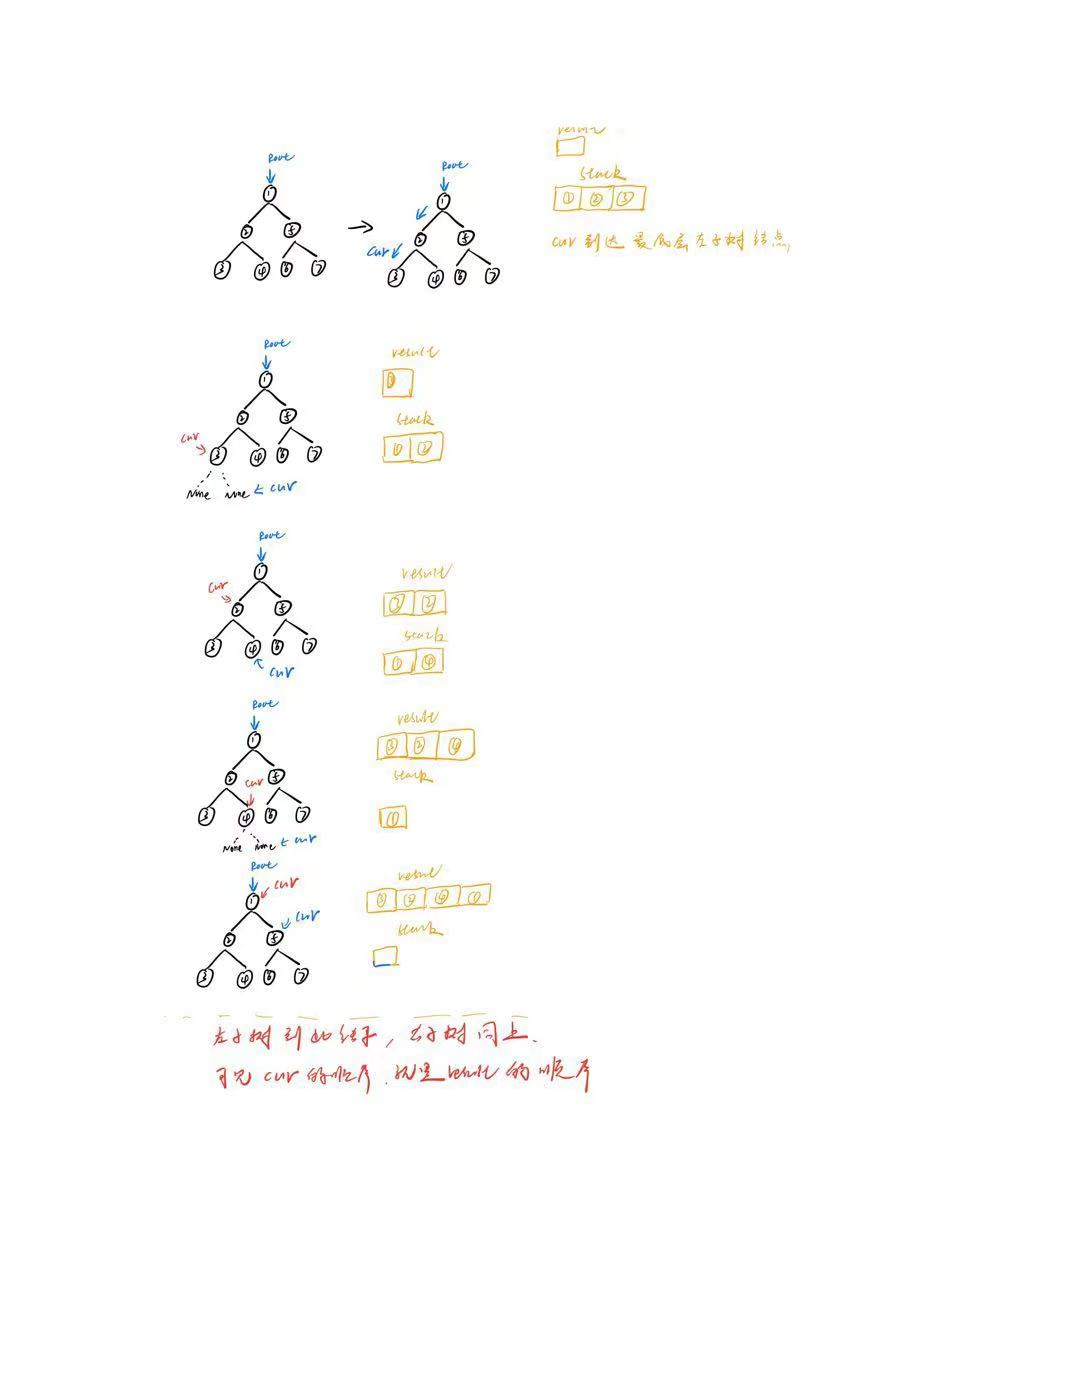 Root
1
2 5
3 4 6 7
Root
1
2 5
cur
3 4 6 7
result
stack
① ② ③
cur 到达 最底层左子树结点
Root
1
2 5
cur
3 4 6 7
None None cur
result
stack
① ②
Root
1
cur
2 5
3 4 6 7
cur
result
③ ②
stack
① ④
Root
1
2 5
cur
3 4 6 7
None None cur
result
③ ② ④
stack
①
Root
cur
1
cur
2 5
3 4 6 7
result
③ ② ④ ①
stack
左子树到此结束, 右子树同上.
可见 cur 的顺序. 就是 result 的顺序